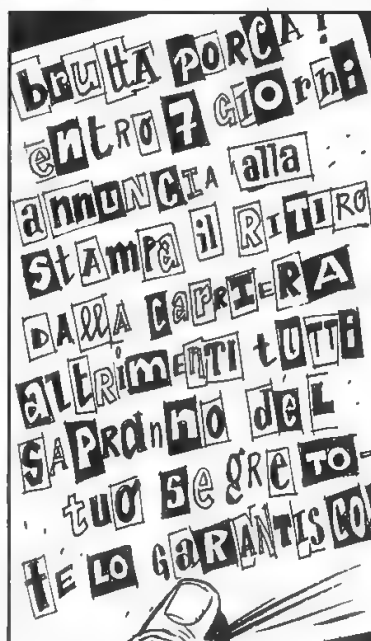 bruttA PORCA!
entro 7 GIOrni
annunCIA alla
StAmpa il RITIRO
DALLA CARRIERA
altRimENTI tUTTi
SAPRanno del
tuo SegreTO-
tE LO GARANTISCO!